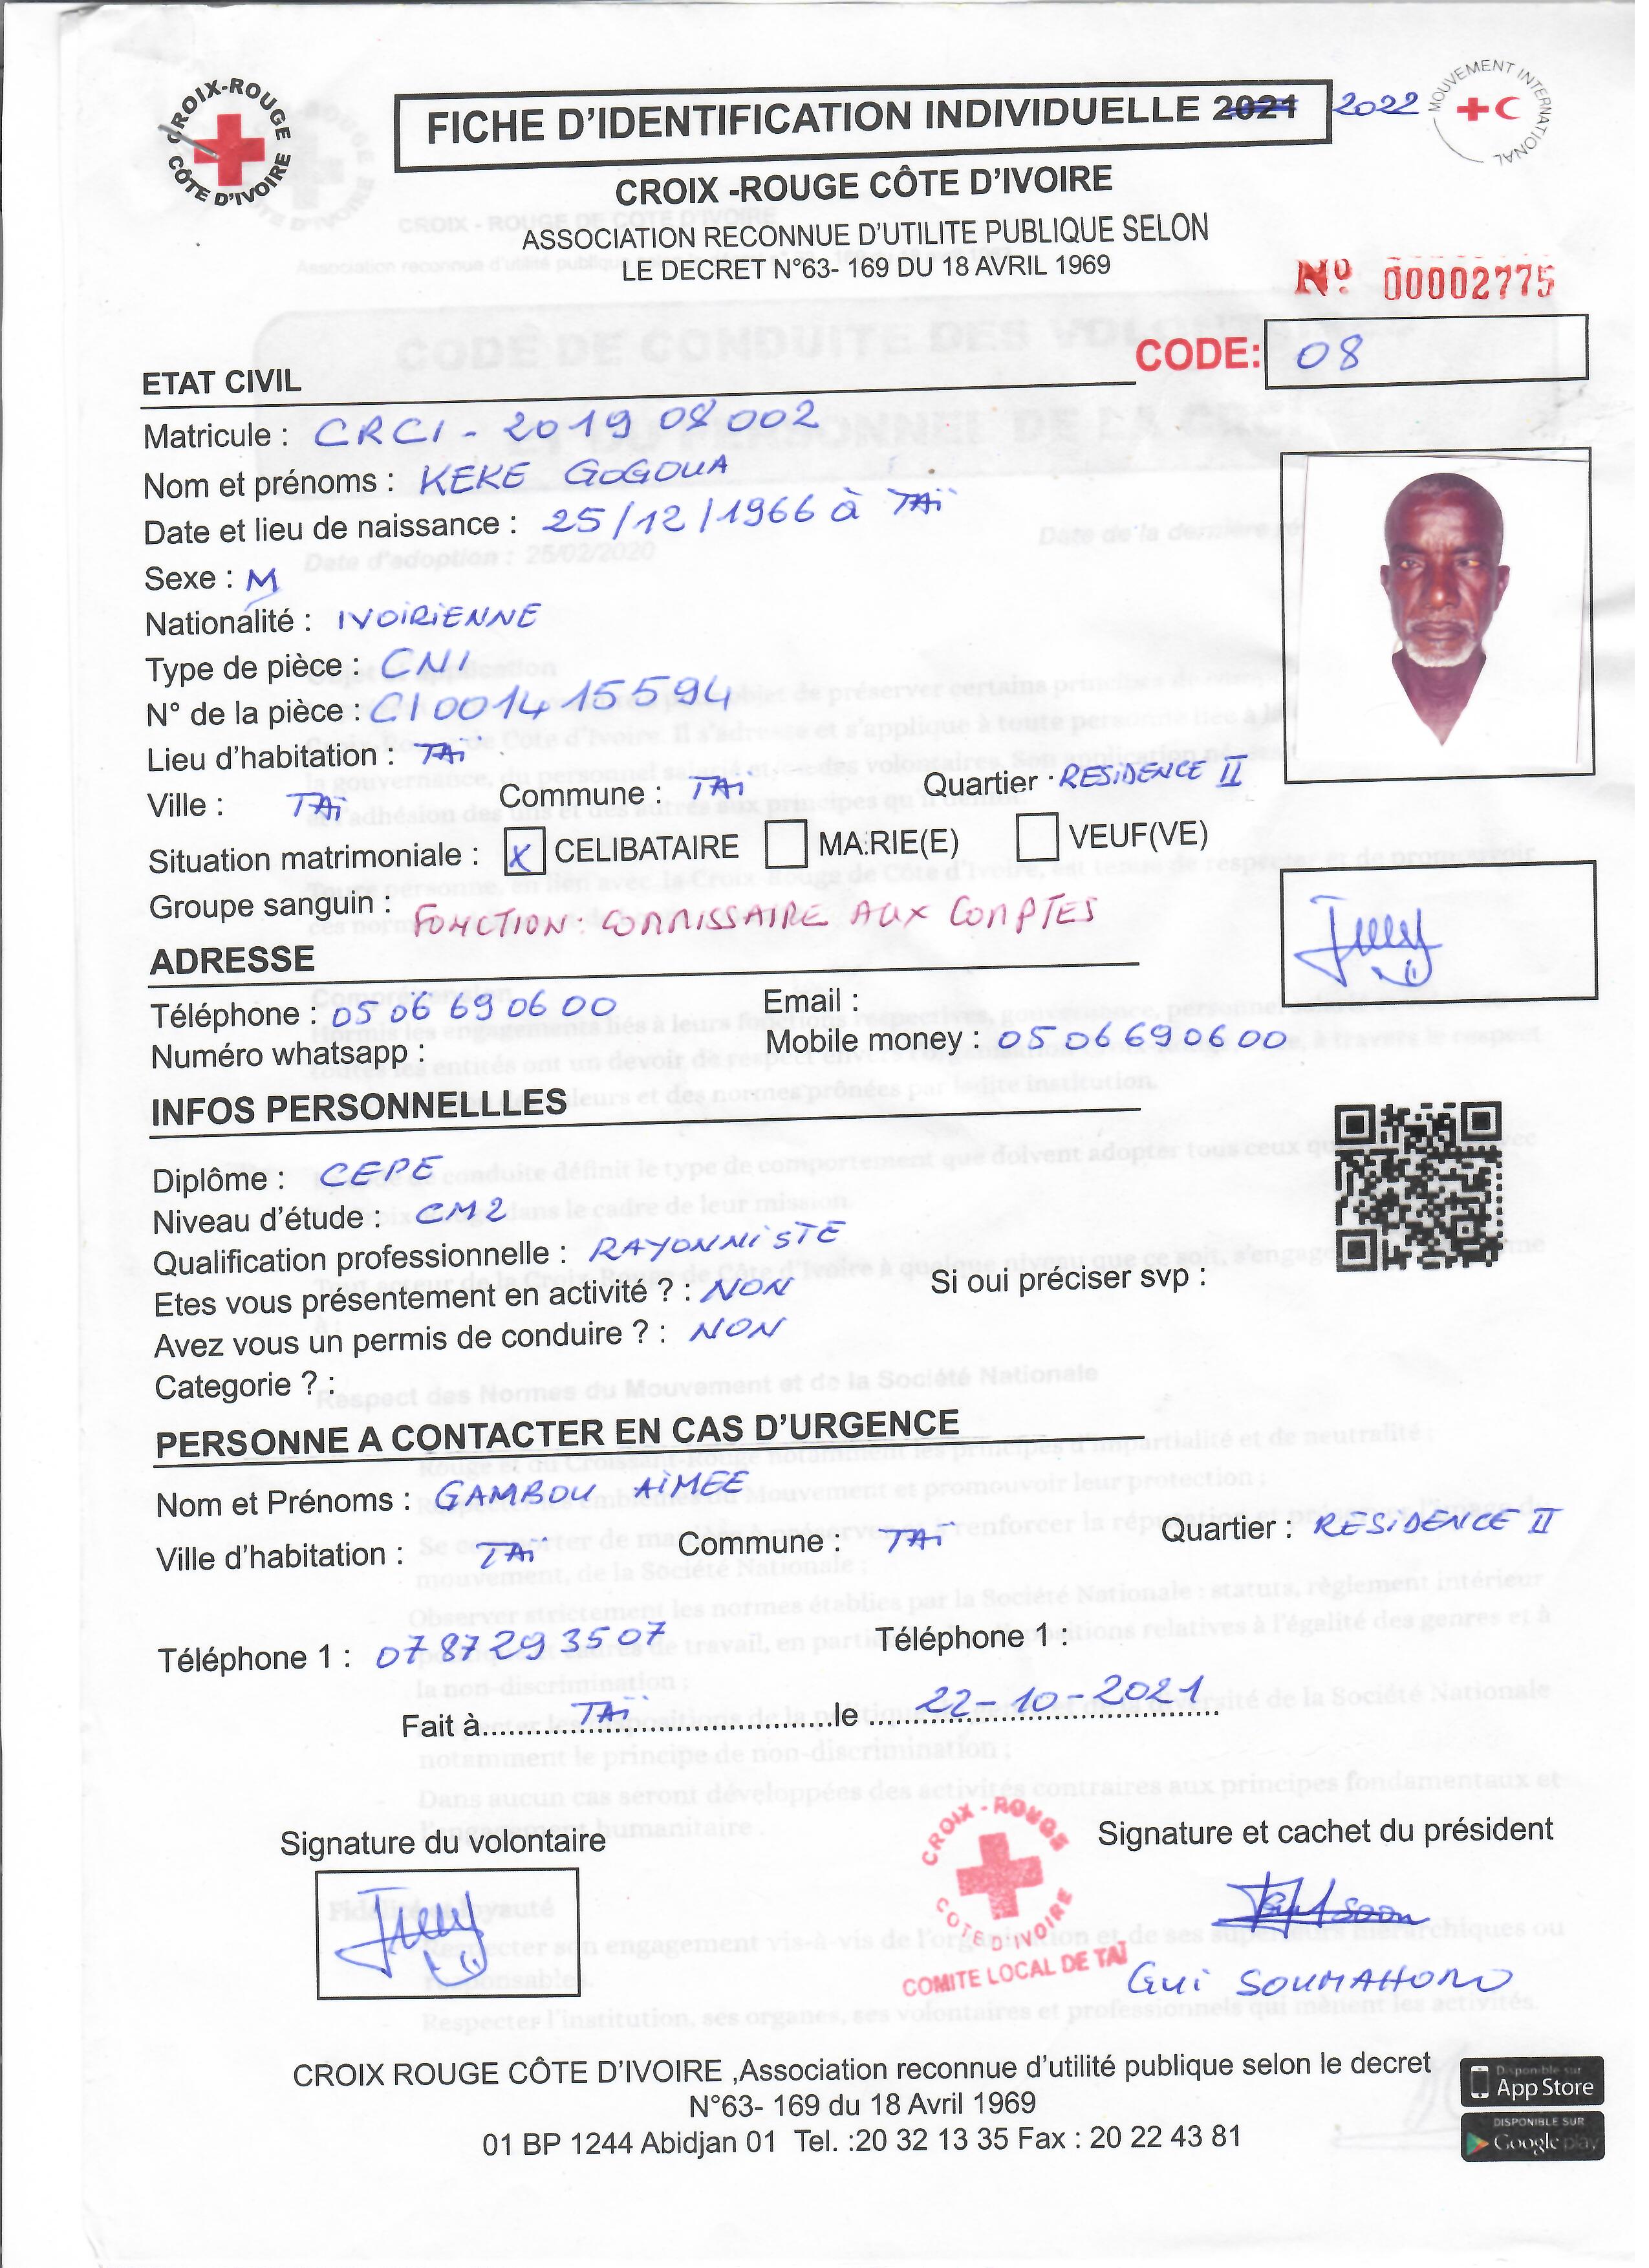 CROIX-ROUGE CÔTE D'IVOIRE
FICHE D'IDENTIFICATION INDIVIDUELLE 2021 2022
MOUVEMENT INTERNATIONAL
CROIX -ROUGE CÔTE D'IVOIRE
ASSOCIATION RECONNUE D'UTILITE PUBLIQUE SELON
LE DECRET N°63- 169 DU 18 AVRIL 1969
Nº 00002775
CODE: 08
ETAT CIVIL
Matricule : CRCI - 2019 08 002
Nom et prénoms : KEKE GOGOUA
Date et lieu de naissance : 25/12/1966 à TAÏ
Sexe : M
Nationalité : IVOIRIENNE
Type de pièce : CNI
N° de la pièce : CI 0014 15594
Lieu d'habitation : TAÏ
Ville : TAÏ Commune : TAÏ Quartier : RESIDENCE II
Situation matrimoniale : X CELIBATAIRE MARIE(E) VEUF(VE)
Groupe sanguin : FONCTION : COMMISSAIRE AUX COMPTES
ADRESSE
Téléphone : 05 06 69 06 00 Email :
Numéro whatsapp : Mobile money : 05 06 69 06 00
INFOS PERSONNELLLES
Diplôme : CEPE
Niveau d'étude : CM2
Qualification professionnelle : RAYONNISTE
Etes vous présentement en activité ? : NON Si oui préciser svp :
Avez vous un permis de conduire ? : NON
Categorie ? :
PERSONNE A CONTACTER EN CAS D'URGENCE
Nom et Prénoms : GAMBOU AIMEE
Ville d'habitation : TAÏ Commune : TAÏ Quartier : RESIDENCE II
Téléphone 1 : 07 87 29 35 07 Téléphone 1 :
Fait à TAÏ le 22-10-2021
Signature du volontaire
CROIX-ROUGE COTE D'IVOIRE
COMITE LOCAL DE TAÏ
Signature et cachet du président
Gui SOUMAHORO
CROIX ROUGE CÔTE D'IVOIRE ,Association reconnue d'utilité publique selon le decret
N°63- 169 du 18 Avril 1969
01 BP 1244 Abidjan 01 Tel. :20 32 13 35 Fax : 20 22 43 81
Disponible sur
App Store
DISPONIBLE SUR
Google play